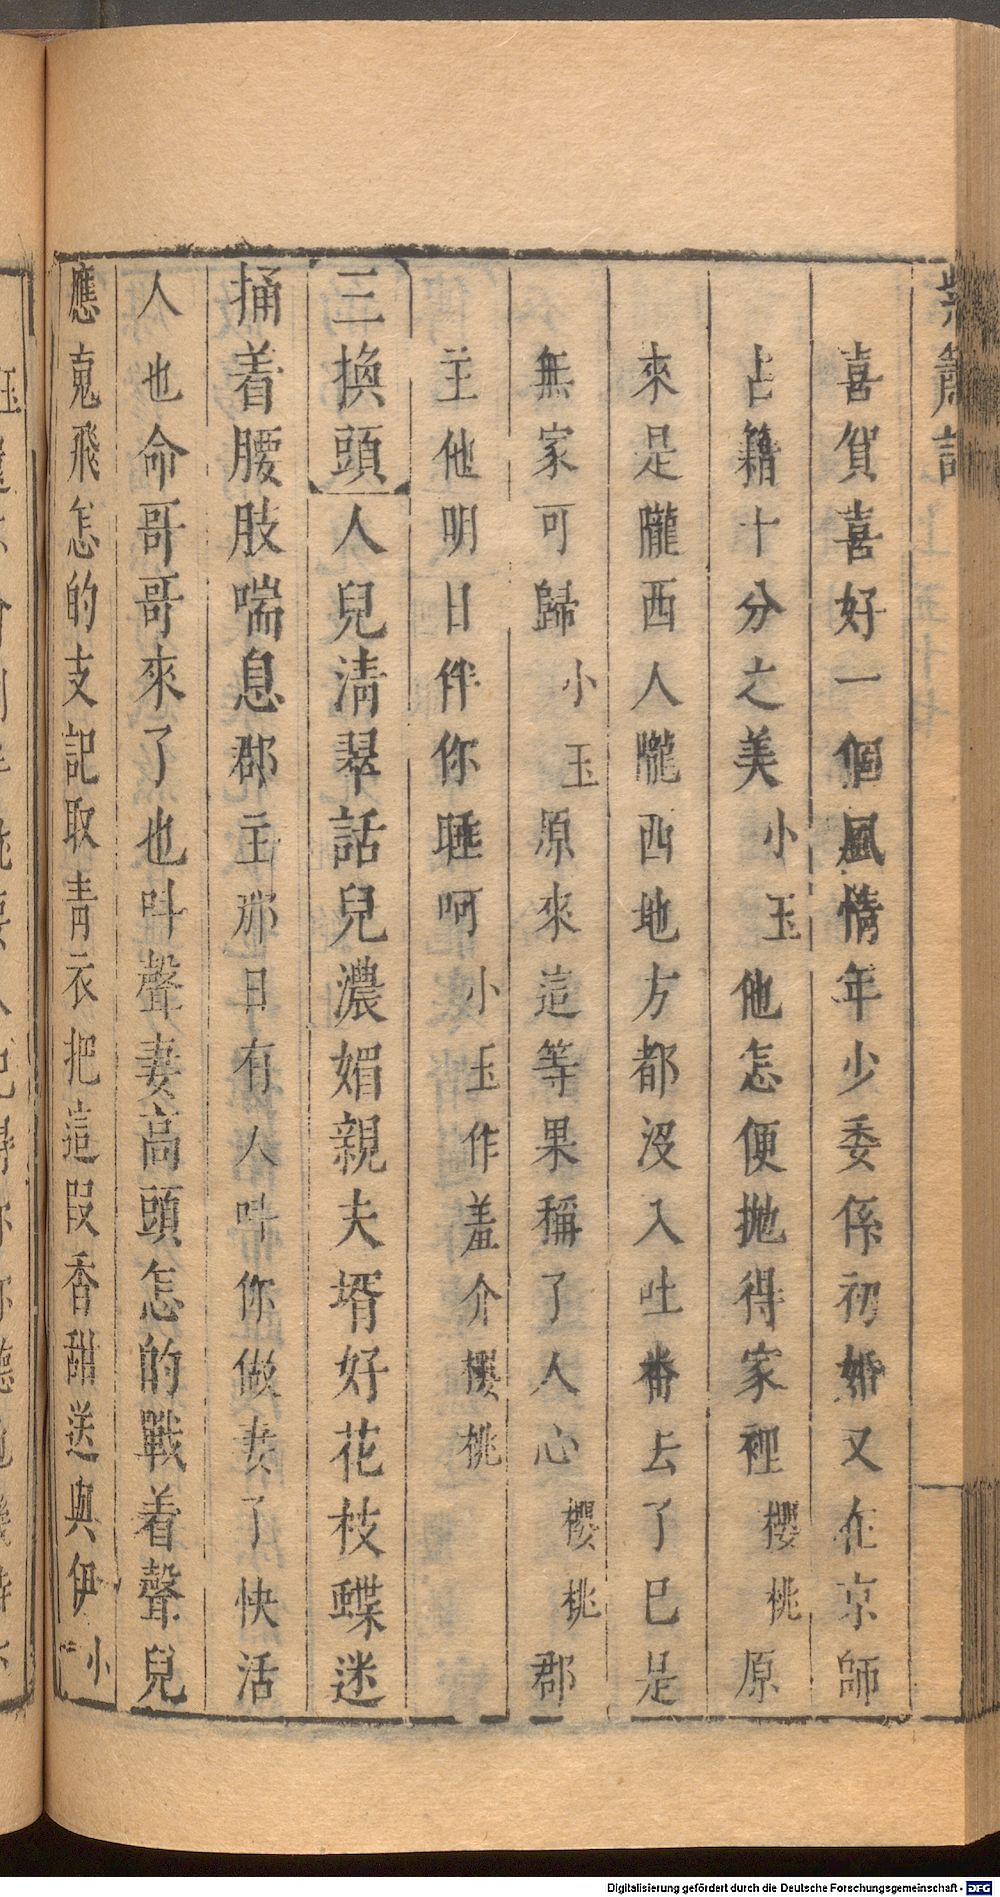 紫簫記
喜賀喜好一個風情年少委係初婚又在京師
占籍十分之美小玉他怎便拋得家裡櫻桃原
來是隴西人隴西地方都沒入吐番去了已是
無家可歸小玉原來這等果稱了人心櫻桃郡
主他明日伴你睡呵小玉作羞介櫻桃
三換頭人兒淸翠話兒濃媚親夫壻好花枝蝶迷
捅着腰肢喘息郡主那日有人呌你做妻了快活
人也命哥哥來了也呌聲妻高頭怎的戰着聲兒
應䰟飛怎的支記取靑衣把這叚香甜送與伊小
Digitalisierung gefördert durch die Deutsche Forschungsgemeinschaft - DFG